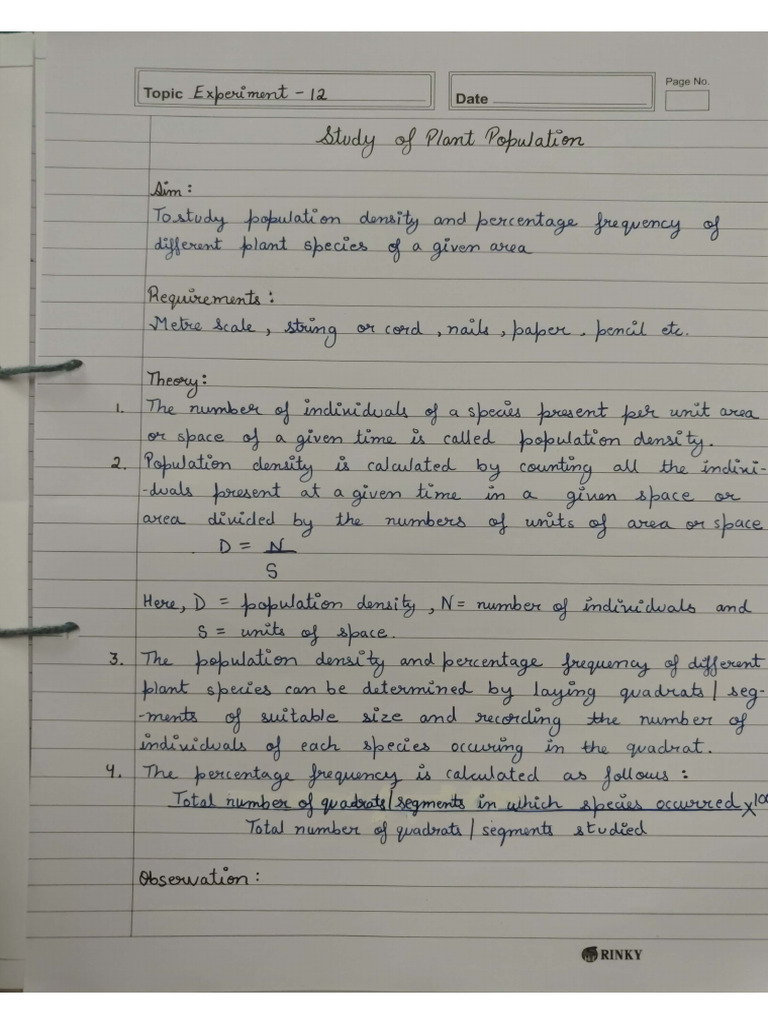 Topic Experiment - 12
Date
Page No.
Study of Plant Population
Aim :
To study population density and percentage frequency of
different plant species of a given area
Requirements :
Metre Scale , string or cord , nails , paper , pencil etc.
Theory :
1. The number of individuals of a species present per unit area
or space of a given time is called population density.
2. Population density is calculated by counting all the indivi-
-duals present at a given time in a given space or
area divided by the numbers of units of area or space
D = N
S
Here, D = population density , N = number of individuals and
S = units of space.
3. The population density and percentage frequency of different
plant species can be determined by laying quadrats / seg-
-ments of suitable size and recording the number of
individuals of each species occuring in the quadrat.
4. The percentage frequency is calculated as follows :
Total number of quadrats / segments in which species occurred x 100
Total number of quadrats / segments studied
Observation :
RINKY